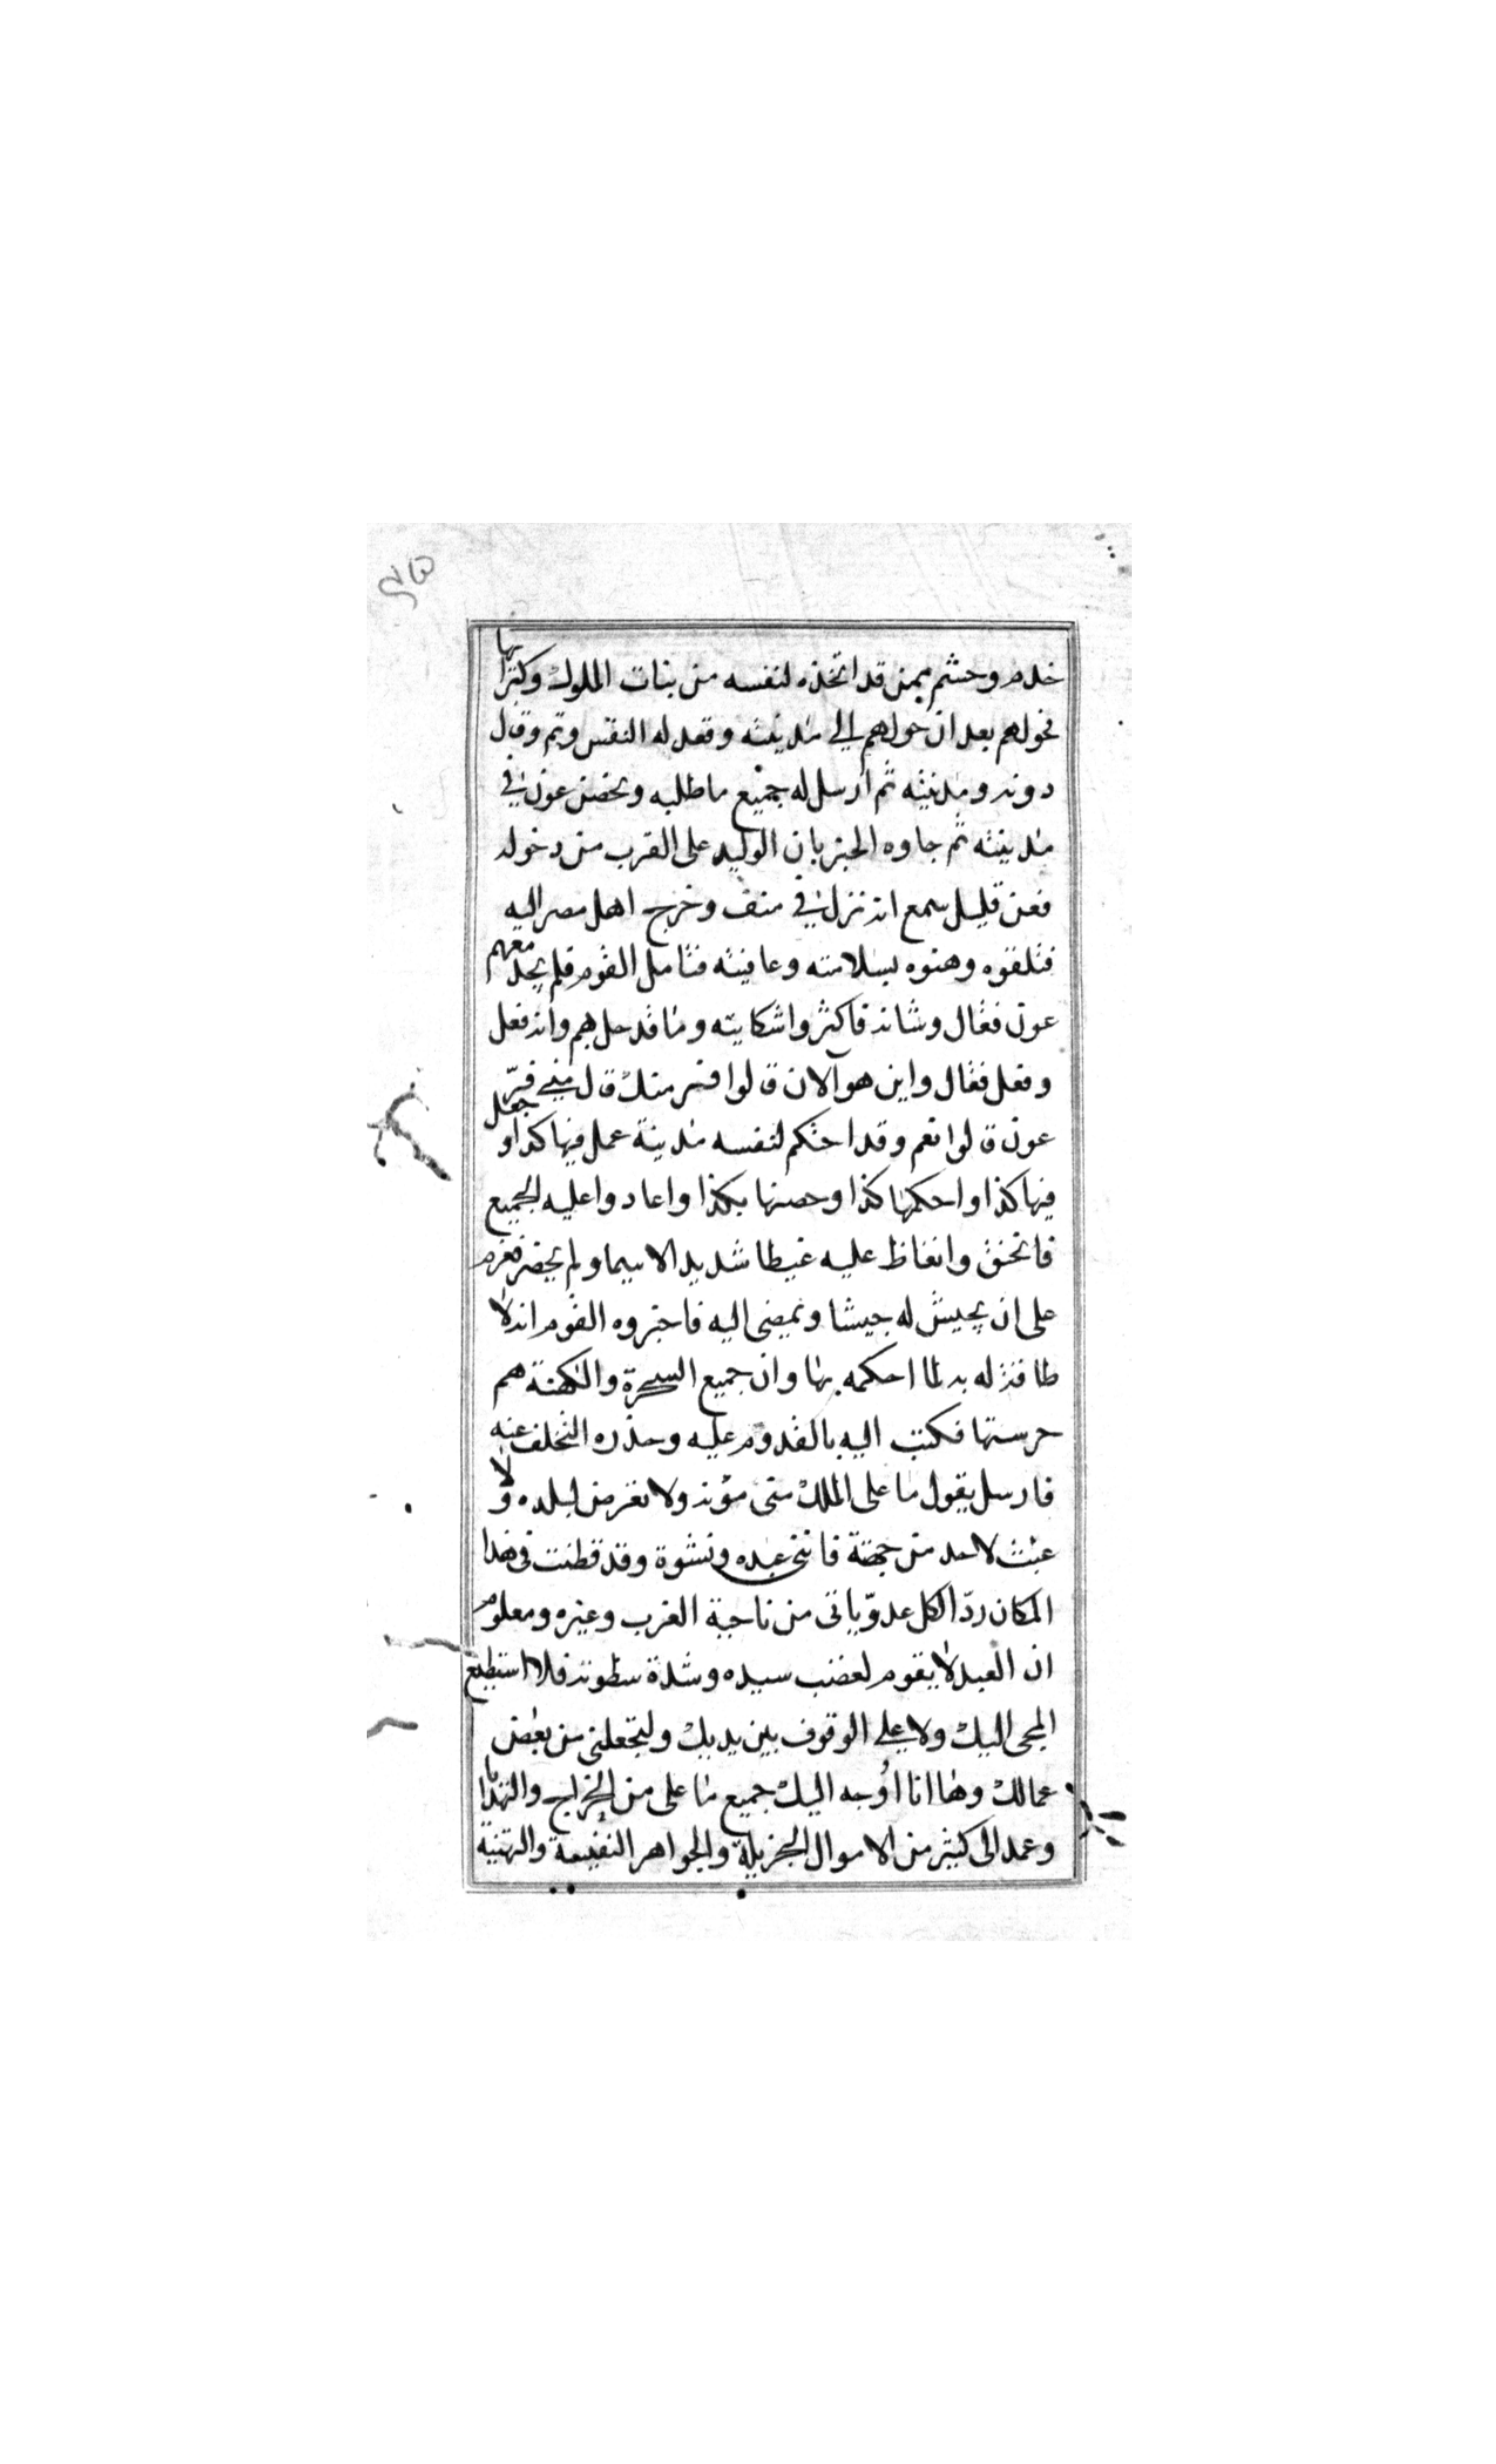 خدم وحشم بمن قد اتخذه لنفسه من بنات الملوك وكبرائها
فحولهم بعد ان حولهم الى مدينته وقعد له النفس وتم وقال
دونه ومدينته ثم ارسل له جميع ما طلبه وتحصن عون في
مدينته ثم جاوه الخبر بان الوليد على القرب من دخوله
فعن قليل سمع انه نزل في منف وخرج اهل مصر اليه
فتلقوه وهنوه بسلامته وعافيته فتامل القوم فلم يجد معهم
عون فقال وشانه فاكثروا شكايته وما قد حل بهم وانه فعل
وفعل فقال واين هو الان قالوا فر منك قال مني فر
عون قالوا نعم وقد احتكم لنفسه مدينة عمل فيها كذا وجعل
فيها كذا واحكمها كذا وحصنها بكذا واعادوا عليه الجميع
فانخنق وانغاظ عليه غيظا شديدا لا سيما ولم يحضر فعزم
على ان يجيش له جيشا ويمضى اليه فاخبروه القوم انه لا
طاقة له به لما احكمه بها وان جميع السحرة والكهنة هم
حرستها فكتب اليه بالقدوم عليه وحذره التخلف عنه
فارسل يقول ما على الملك منى مؤنة ولا تعرض لبلده ولا
عبث لاحد من جهتة فاننى عبده ونشوة وقد قطنت فى هذا
المكان ردّا لكل عدوّ ياتى من ناحية الغرب وغيره ومعلوم
ان العبد لا يقوم لغضب سيده وشدة سطوته فلا استطيع
المجى اليك ولا على الوقوف بين يديك وليجعلنى من بعض
عمالك وها انا اُوجه اليك جميع ما على من الخراج والهدايا
وعمد الى كثير من الاموال الجزيلة والجواهر النفيسة والبهية